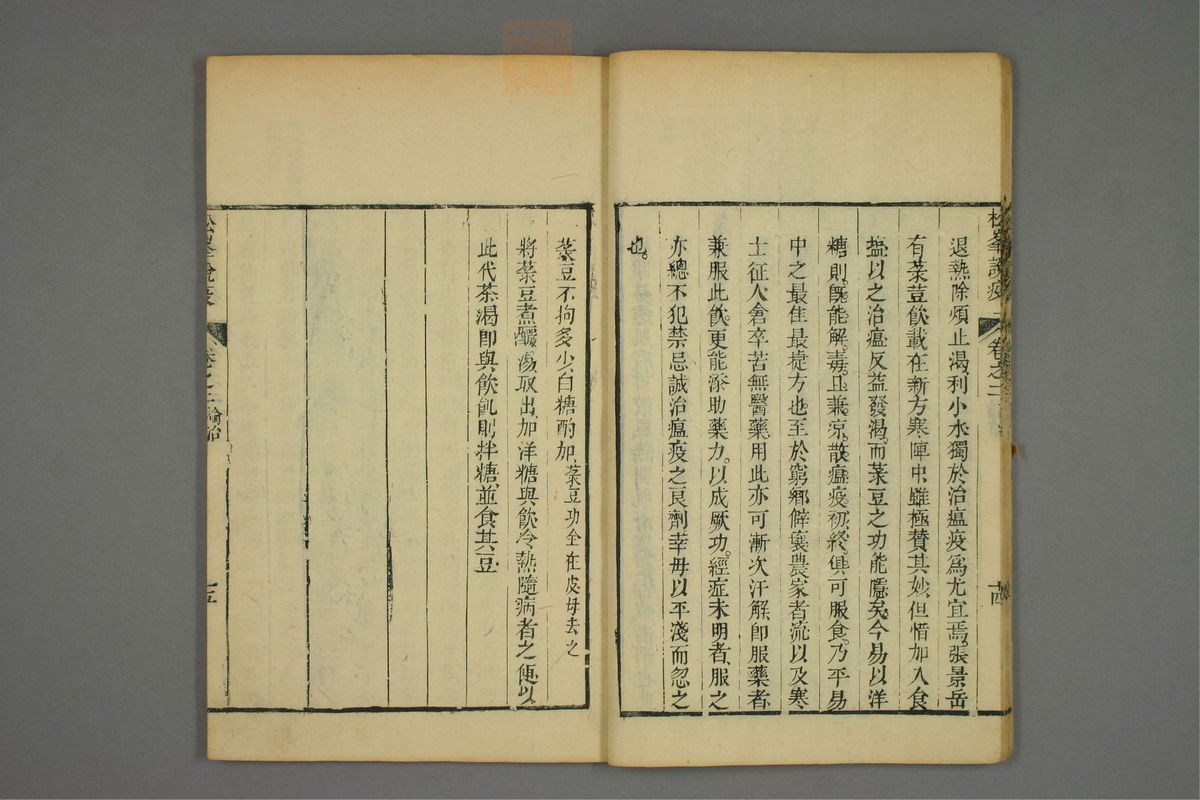 松峯說疫
卷之二
十四
退熱除煩止渴利小水獨於治瘟疫爲尤宜焉張景岳
有菉荳飲載在新方寒陣中雖極贊其妙但惜加入食
塩以之治瘟反益發渴而菉豆之功能隱矣今易以洋
糖則旣能解毒且兼涼散瘟疫初終俱可服食乃平易
中之最隹最捷方也至於窮鄉僻壤農家者流以及寒
士征人倉卒苦無醫藥用此亦可漸次汗解卽服藥者
兼服此飲更能添助藥力以成厥功經症未明者服之
亦總不犯禁忌誠治瘟疫之良劑幸毋以平淺而忽之
也
菉豆不拘多少白糖酌加菉豆功全在皮毋去之
將菉豆煮釅湯取出加洋糖與飲冷熱隨病者之便以
此代茶渴卽與飲飢則拌糖並食其豆
松峯說疫
卷之二
論治
十五